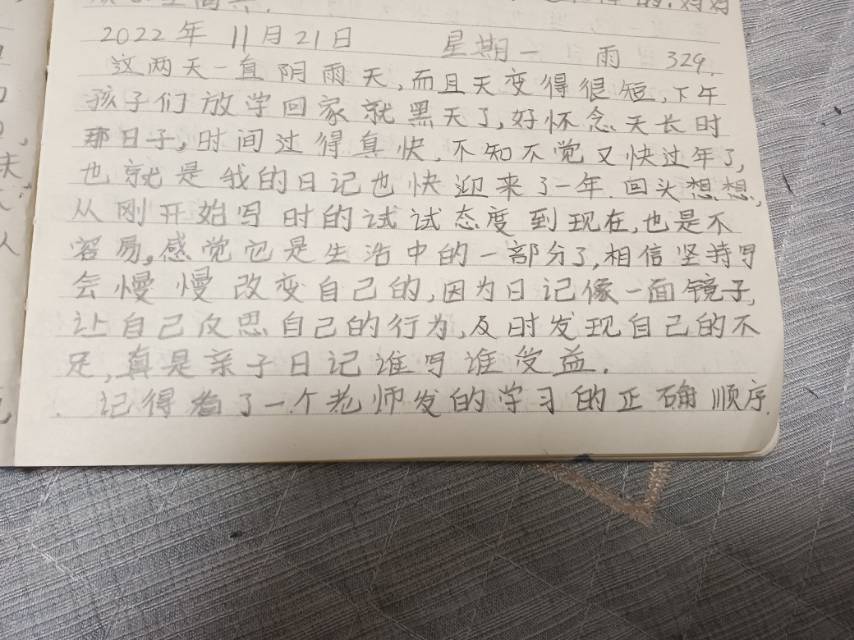 2022年11月21日 星期一 雨 329.
这两天一直阴雨天,而且天变得很短,下午
孩子们放学回家就黑天了,好怀念天长时
那日子,时间过得真快,不知不觉又快过年了,
也就是我的日记也快迎来了一年.回头想想,
从刚开始写时的试试态度到现在,也是不
容易,感觉它是生活中的一部分了,相信坚持写
会慢慢改变自己的,因为日记像一面镜子,
让自己反思自己的行为,及时发现自己的不
足,真是亲子日记谁写谁受益.
记得看了一个老师发的学习的正确顺序.